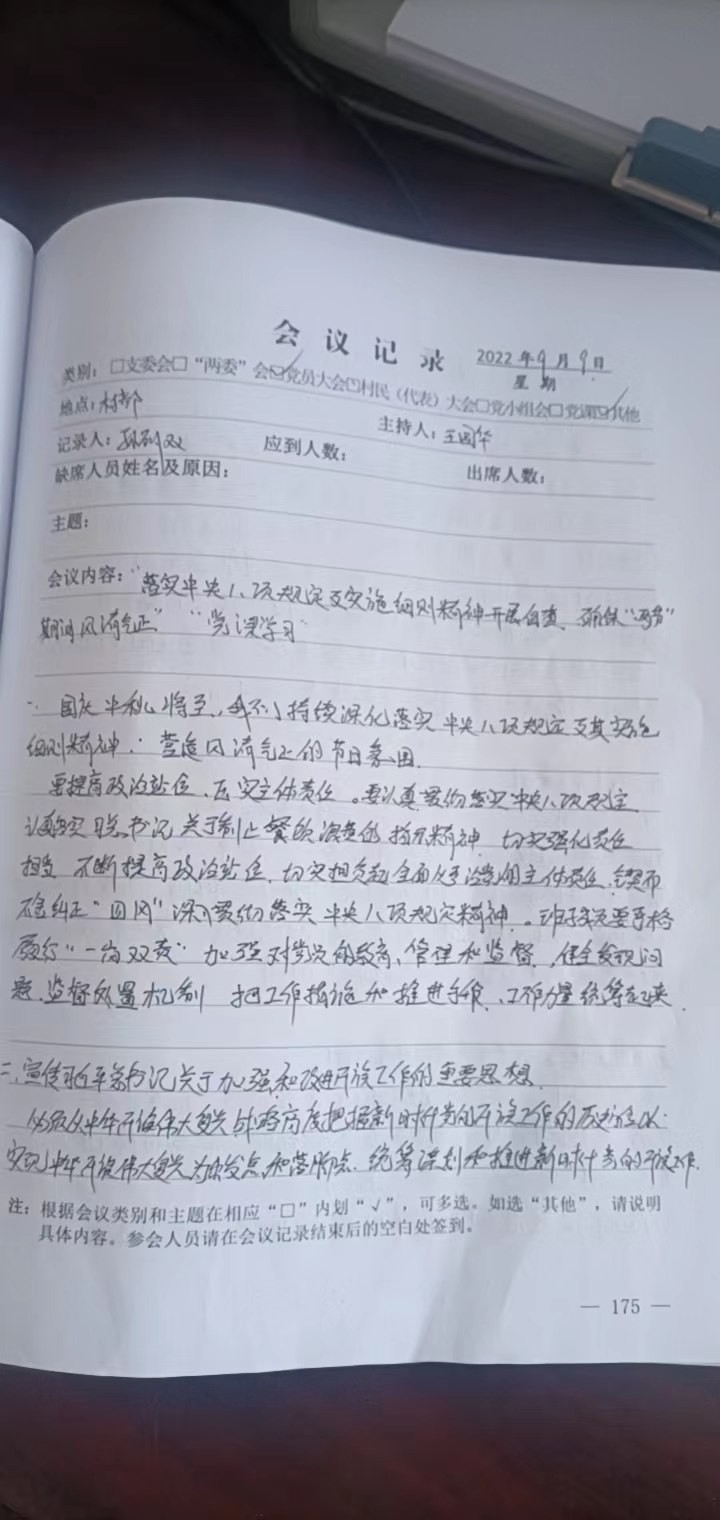 会议记录 2022年9月9日
星期
类别：□支委会□“两委”会☑党员大会□村民（代表）大会□党小组会□党课☑其他
地点：村部 主持人：王国华
记录人： 应到人数：
缺席人员姓名及原因： 出席人数：
主题：
会议内容：“落实中央八项规定及实施细则精神开展自查、确保“两节”
期间风清气正” “党课学习”
一、国庆中秋将至，我们持续深化落实中央八项规定及其实施
细则精神，营造风清气正的节日氛围.
要提高政治站位、压实主体责任。要认真贯彻落实中央八项规定
书记关于制止餐饮浪费的指示精神 切实强化责任
担当 不断提高政治站位、切实担负起全面从严治党的主体责任、锲而
不舍纠正“四风”深入贯彻落实中央八项规定精神。班子成员要严格
履行“一岗双责”加强对党员的教育、管理和监督，健全发现问
题、监督处置机制 把工作措施和推进手段、工作力量统筹起来.
二、宣传习近平总书记关于加强和改进民族工作的重要思想.
必须从中华民族伟大复兴战略高度把握新时代党的民族工作的历史方位以
实现中华民族伟大复兴为出发点和落脚点、统筹谋划和推进新时代党的民族工作.
注：根据会议类别和主题在相应“□”内划“√”，可多选。如选“其他”，请说明
具体内容。参会人员请在会议记录结束后的空白处签到。
— 175 —